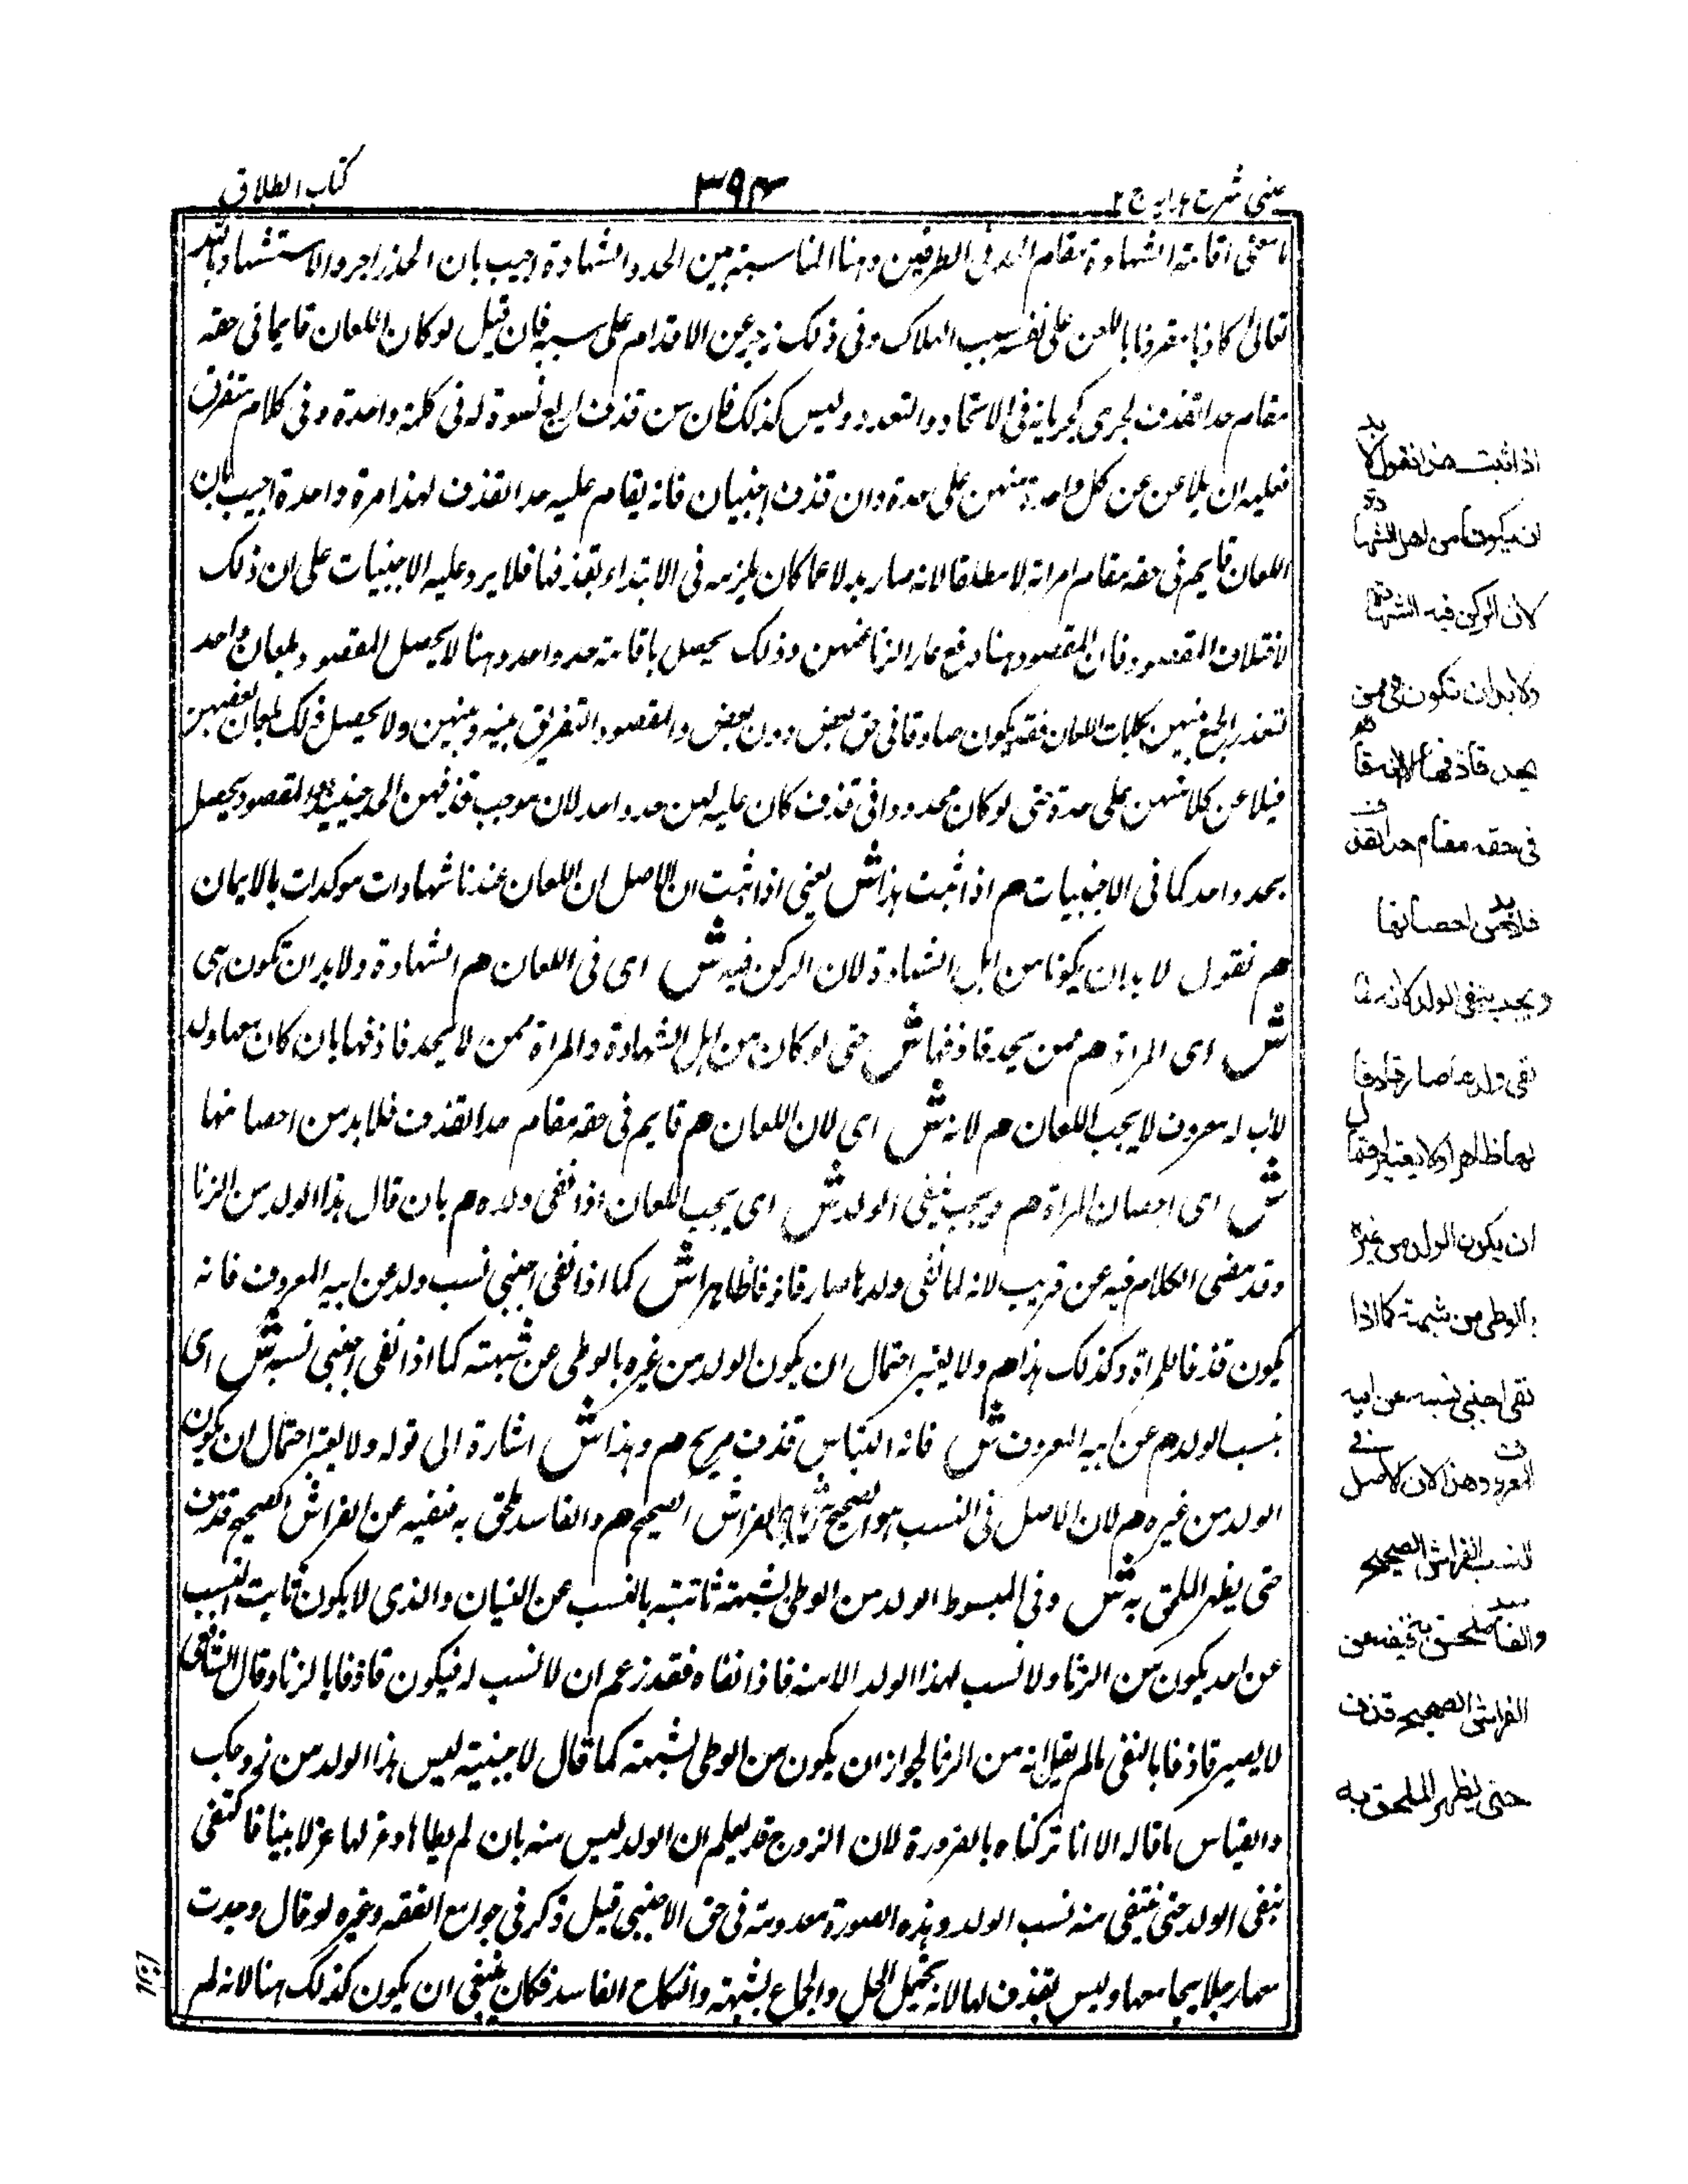 عینی شرح ہدایہ ج ٢
٣٩٤
كتاب الطلاق
ما معنى اقامة الشهادة مقام الحد فى الطرفين وهنا المناسبة بين الحد والشهادة اجيب بان الحد زاجر والاستشهاد بالله
تعالى كاذبا مقرونا باللعن على نفسه سبب الهلاك وفى ذلك زجر عن الاقدام على سببه فان قيل لو كان اللعان قايما فى حقه
مقام حد القذف لجرى كجريانه فى الاتحاد والتعدد وليس كذلك فان من قذف اربع نسوة له فى كلمة واحدة وفى كلام متفرق
فعليه ان يلاعن عن كل واحدة منهن على حدة وان قذف اجنبيات فانه يقام عليه حد القذف لهذا مرة واحدة اجيب بان
اللعان قايم فى حقه مقام امراته لا مطلقا لانه صار بدلا عما كان يلزمه فى الابتداء بقذفها فلا يرد عليه الاجنبيات على ان ذلك
لاختلاف المقصود فان المقصود هنا دفع عار الزنا عنهن وذلك يحصل باقامة حد واحد وهنا لا يحصل المقصود بلعان واحد
لتعذر الجمع بينهن بكلمات اللعان فقد يكون صادقا فى حق بعض دون بعض والمقصود التفريق بينه وبينهن ولا يحصل ذلك بلعان بعضهن
فيلاعن كلا منهن على حدة حتى لو كان محدودا فى قذف كان عليه لهن حد واحد لان موجب قذفهن الحد حينئذ والمقصود يحصل
بحد واحد كما فى الاجنبيات هم اذا ثبت هذا ش يعنى اذا ثبت ان الاصل ان اللعان عندنا شهادات موكدات بالايمان
هم نقول لا بد ان يكونا من اهل الشهادة لان الركن فيه ش اى فى اللعان هم الشهادة ولا بد ان تكون هى
ش اى المراة هم ممن يحد قاذفها ش حتى لو كان من اهل الشهادة والمراة ممن لا يحد قاذفها بان كان معها ولد
لاب له معروف لا يجب اللعان هم لانه ش اى لان اللعان هم قايم فى حقه مقام حد القذف فلا بد من احصانها
ش اى احصان المراة هم ويجب بنفى الولد ش اى يجب اللعان اذا نفى ولده هم بان قال هذا الولد من الزنا
وقد مضى الكلام فيه عن قريب لانه لما نفى ولدها صار قاذفا ظاهرا ش كما اذا نفى اجنبى نسب ولد عن ابيه المعروف فانه
يكون قذفا للمراة وكذلك هذا هم ولا يعتبر احتمال ان يكون الولد من غيره بالوطى عن شبهته كما اذا نفى اجنبى نسبه ش اى
نسب الولد هم عن ابيه المعروف ش فانه القياس قذف صريح هم وهذا ش اشارة الى قوله ولا يعتبر احتمال ان يكون
الولد من غيره هم لان الاصل فى النسب هو الصحيح الفراش الصحيح هم والفاسد ملحق به فنفيه عن الفراش الصحيح قذف
حتى يظهر الملحق به ش وفى المبسوط الولد من الوطى بشبهته ثابتة بالنسب عن الغيان والذى لا يكون ثابت النسب
عن احد يكون من الزنا ولا نسب لهذا الولد الا منه فاذا نفاه فقد زعم ان لا نسب له فيكون قاذفا بالزنا وقال الشافعى
لا يصير قاذفا بالنفى مالم يقل انه من الزنا لجواز ان يكون من الوطى بشبهته كما قال لاجنبية ليس هذا الولد من زوجك
والقياس ما قاله الا انا تركناه بالضرورة لان الزوج قد يعلم ان الولد ليس منه بان لم يطاها وعزلها عزلا بينا فاكتفى
بنفى الولد حتى ينتفى منه نسب الولد وهذه الصورة معدومة فى حق الاجنبى قيل ذكر فى جوامع الفقه وغيره لو قال وجدت
معها رجلا يجامعها وليس بقذف لها لانه يحتمل الحل والجماع بشبهته والنكاح الفاسد فكان ينبغى ان يكون كذلك هنا لانه لم
اذا ثبت هذا نقول لا بد
ان يكونا من اهل الشهادة
لان الركن فيه الشهادة
ولا بد ان تكون هى ممن
يحد قاذفها لانه قايم
فى حقه مقام حد القذف
فلا بد من احصانها
ويجب بنفى الولد لانه لما
نفى ولدها صار قاذفا
لها ظاهرا ولا يعتبر احتمال
ان يكون الولد من غيره
بالوطى من شبهة كما اذا
نفى اجنبى نسبه عن ابيه
المعروف وهذا لان الاصل فى
النسب الفراش الصحيح
والفاسد ملحق به فنفيه عن
الفراش الصحيح قذف
حتى يظهر الملحق به